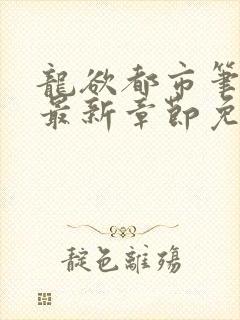 龍欲都市筆
最新章節免
靛色離殤